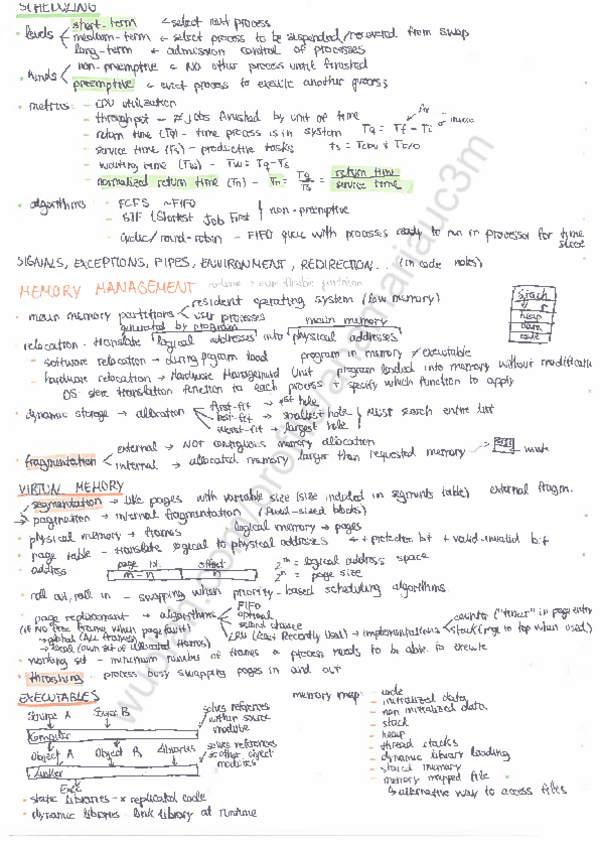 SCHEDULING
• levels
short-term ← select next process
medium-term ← select process to be suspended/recovered from swap
long-term ← admission control of processes
• kinds
non-preemptive ← NO other process until finished
preemptive ← evict process to execute another process
• metrics - CPU utilization
- throughput - # jobs finished by unit of time
- return time (Tq) - time process is in system Tq = Tf - Ti
- service time (Ts) - productive tasks ts = TCPU + TI/O
- waiting time (Tw) - Tw = Tq - Ts
- normalized return time (Tn) - Tn = Tq/Ts = return time / service time
• algorithms - FCFS ~ FIFO
- SJF (Shortest Job First) non-preemptive
- cyclic/round-robin - FIFO queue with processes ready to run in processor for time slice
SIGNALS, EXCEPTIONS, PIPES, ENVIRONMENT, REDIRECTION... (in code notes)
MEMORY MANAGEMENT
• main memory partitions
resident operating system (low memory)
user processes
generated by program
main memory
• relocation - translate logical addresses into physical addresses
- software relocation → during program load program in memory ≠ executable
- hardware relocation → Hardware Management Unit program loaded into memory without modification
OS: store translation function to each process + specify which function to apply
stack
heap
data
code
• dynamic storage → allocation
first-fit → 1st hole
best-fit → smallest hole
worst-fit → largest hole
must search entire list
• fragmentation
external → NOT contiguous memory allocation
internal → allocated memory larger than requested memory → waste
VIRTUAL MEMORY
→ segmentation → like pages with variable size (size included in segments table) external fragm.
→ pagination → internal fragmentation (fixed-sized blocks)
• physical memory → frames logical memory → pages
• page table - translate logical to physical addresses ← + protection bit + valid-invalid bit
• address
page id. offset
m - n n
2^m = logical address space
2^n = page size
• roll out, roll in - swapping when priority-based scheduling algorithms.
• page replacement → algorithms
(if No free frame when page fault)
→ global (ALL frames)
→ local (own set of allocated frames)
FIFO
optimal
second chance
LRU (Least Recently Used) → implementations
counter ("timer" in page entry)
stack (page to top when used)
• working set - minimum number of frames a process needs to be able to execute
• thrashing - process busy swapping pages in and out
EXECUTABLES
Source A Source B
Compiler
solves references within source module
Object A Object B Libraries
Linker
solves references so other object modules
Exec
• static libraries → replicated code
• dynamic libraries - link library at runtime
memory map: - code
- initialized data
- non initialized data
- stack
- heap
- thread stacks
- dynamic library loading
- shared memory
- memory mapped file
↳ alternative way to access files